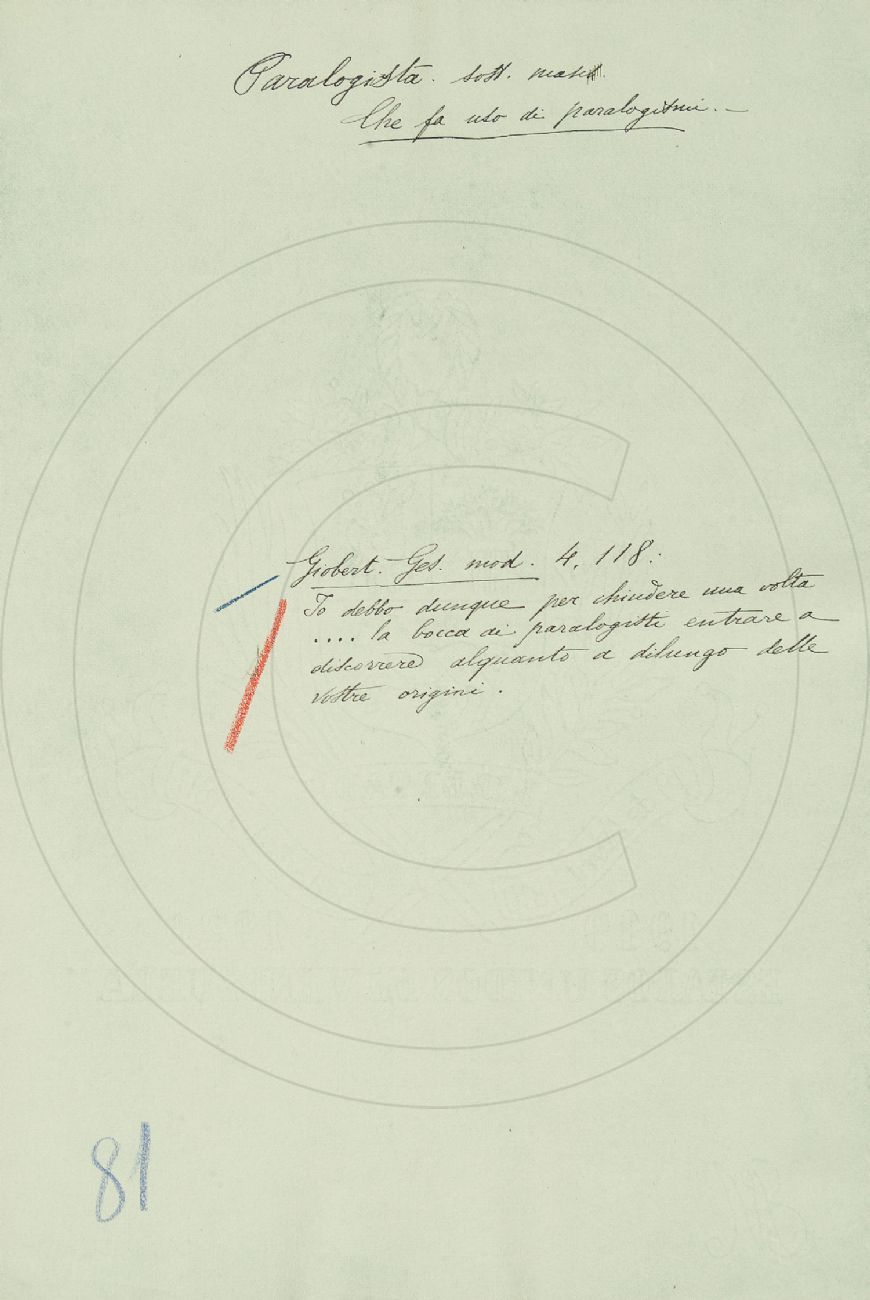 Paralogista. sost. masc.
Che fa uso di paralogismi. —
Giobert. Ges. mod. 4, 118:
Io debbo dunque per chiudere una volta
.... la bocca ai paralogisti entrare a
discorrere alquanto a dilungo delle
vostre origini.
81